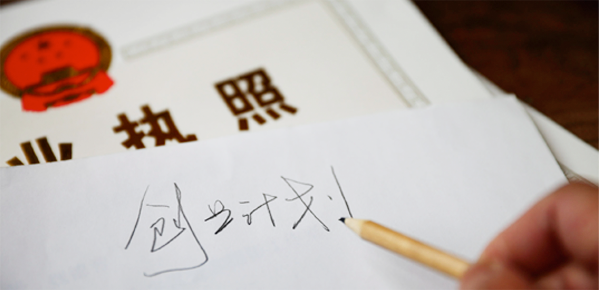 业执照
创业计划